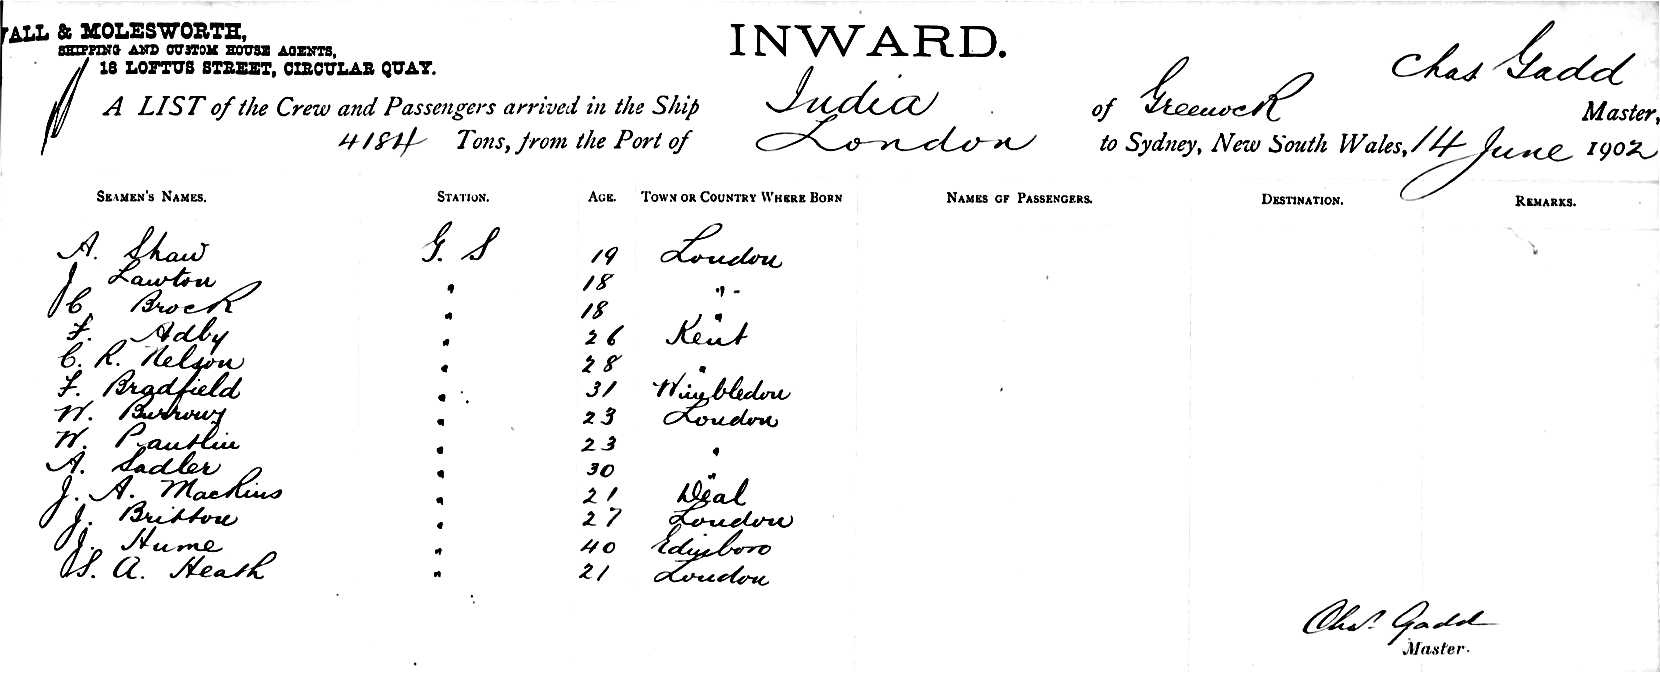 ALL & MOLESWORTH,
SHIPPING AND CUSTOM HOUSE AGENTS,
18 LOFTUS STREET, CIRCULAR QUAY.
INWARD.
Chas Gadd
A LIST of the Crew and Passengers arrived in the Ship India of Greenock Master,
4184 Tons, from the Port of London to Sydney, New South Wales, 14 June 1902
SEAMEN'S NAMES. STATION. AGE. TOWN OR COUNTRY WHERE BORN NAMES OF PASSENGERS. DESTINATION. REMARKS.
A. Shaw G. S 19 London
J Lawton " 18 "
C. Brock " 18 "
F. Adby " 26 Kent
C. R. Nelson " 28 "
F. Bradfield " 31 Wimbledon
W. Burrows " 23 London
W. Pantlin " 23 "
A. Sadler " 30 "
J. A. Mackins " 21 Deal
J. Britton " 27 London
J. Hume " 40 Edinboro
S. A. Heath " 21 London
Chas. Gadd
Master.